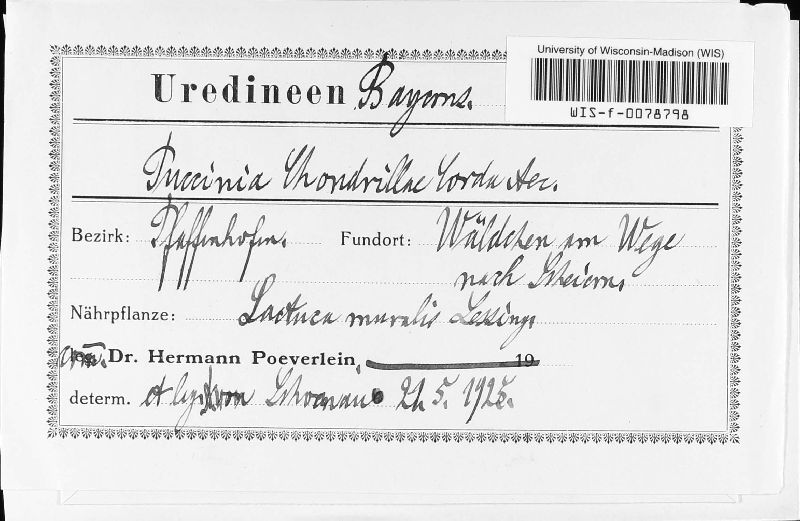 University of Wisconsin-Madison (WIS)
WIS-f-0078798
Uredineen Bayerns.
Puccinia Chondrillae Corda Aec.
Bezirk: Pfaffenhofen. Fundort: Wäldchen am Wege
nach Scheiern.
Nährpflanze: Lactuca muralis Lessing.
Dr. Hermann Poeverlein, 19
determ. et leg. von 21. 5. 1925.